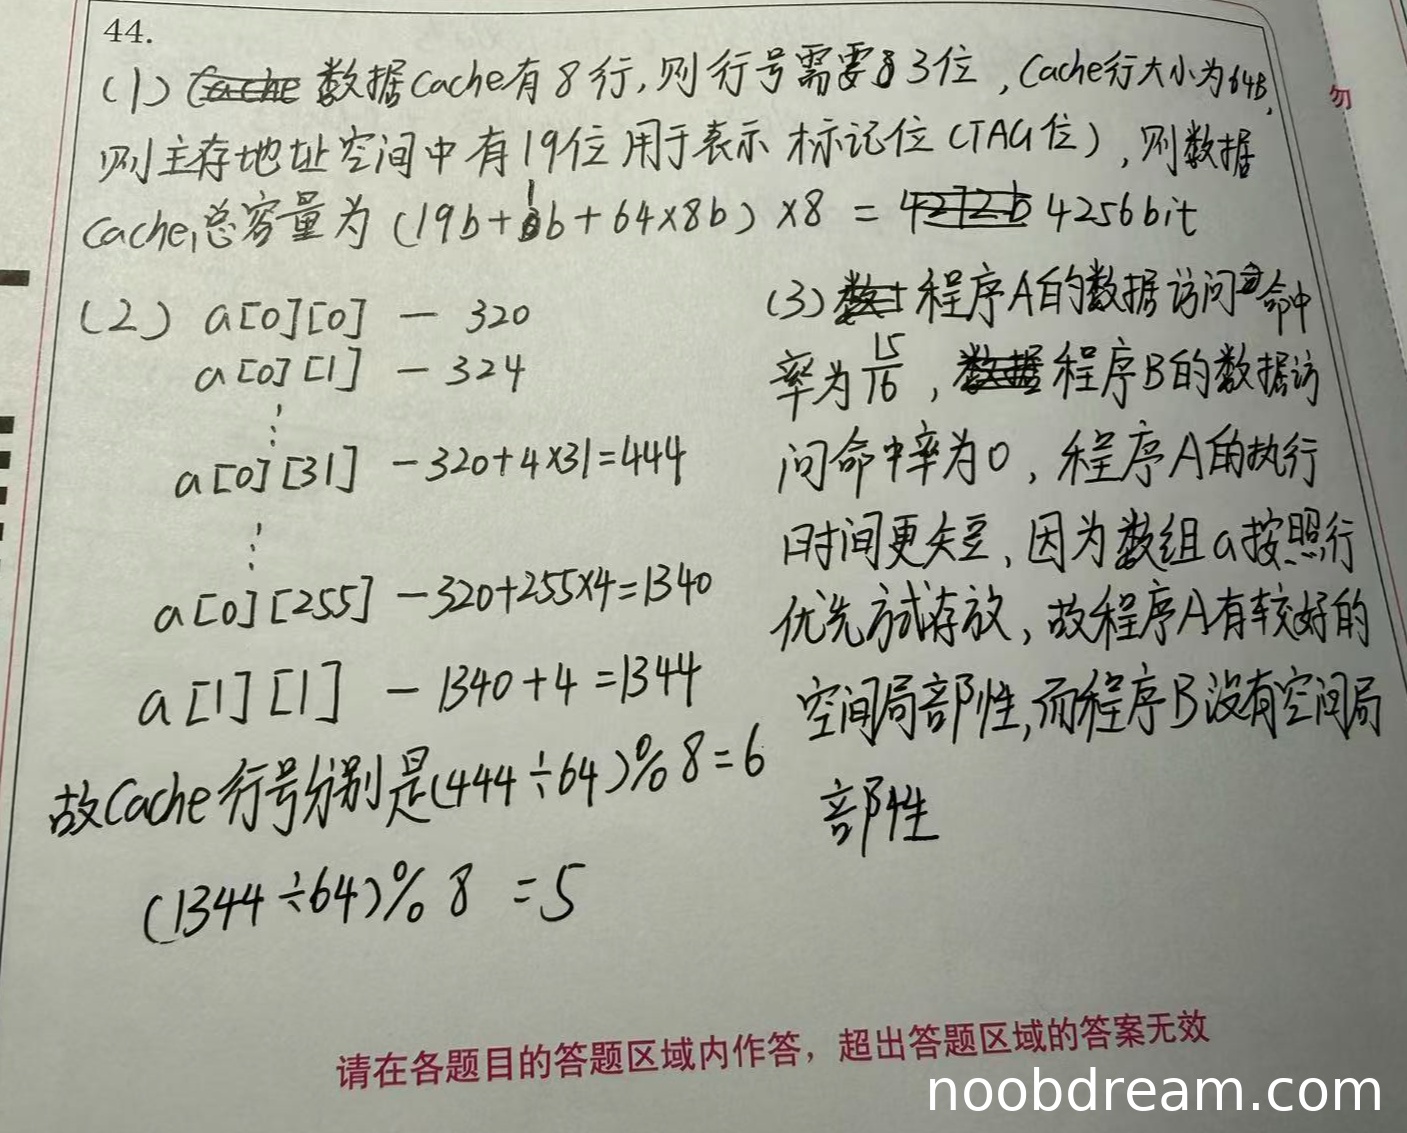 44.
(1) 数据Cache有8行,则行号需要3位,Cache行大小为64B,
则主存地址空间中有19位用于表示标记位(TAG位),则数据
Cache总容量为(19b+1b+64×8b)×8 = 4256bit
(2) a[0][0] — 320
a[0][1] — 324
⋮
a[0][31] — 320+4×31=444
⋮
a[0][255] — 320+255×4=1340
a[1][1] — 1340+4=1344
故Cache行号分别是(444÷64)%8=6
(1344÷64)%8 =5
(3) 程序A的数据访问命中
率为15/16,程序B的数据访
问命中率为0,程序A的执行
时间更短,因为数组a按照行
优先方式存放,故程序A有较好的
空间局部性,而程序B没有空间局
部性
请在各题目的答题区域内作答,超出答题区域的答案无效
勿
noobdream.com